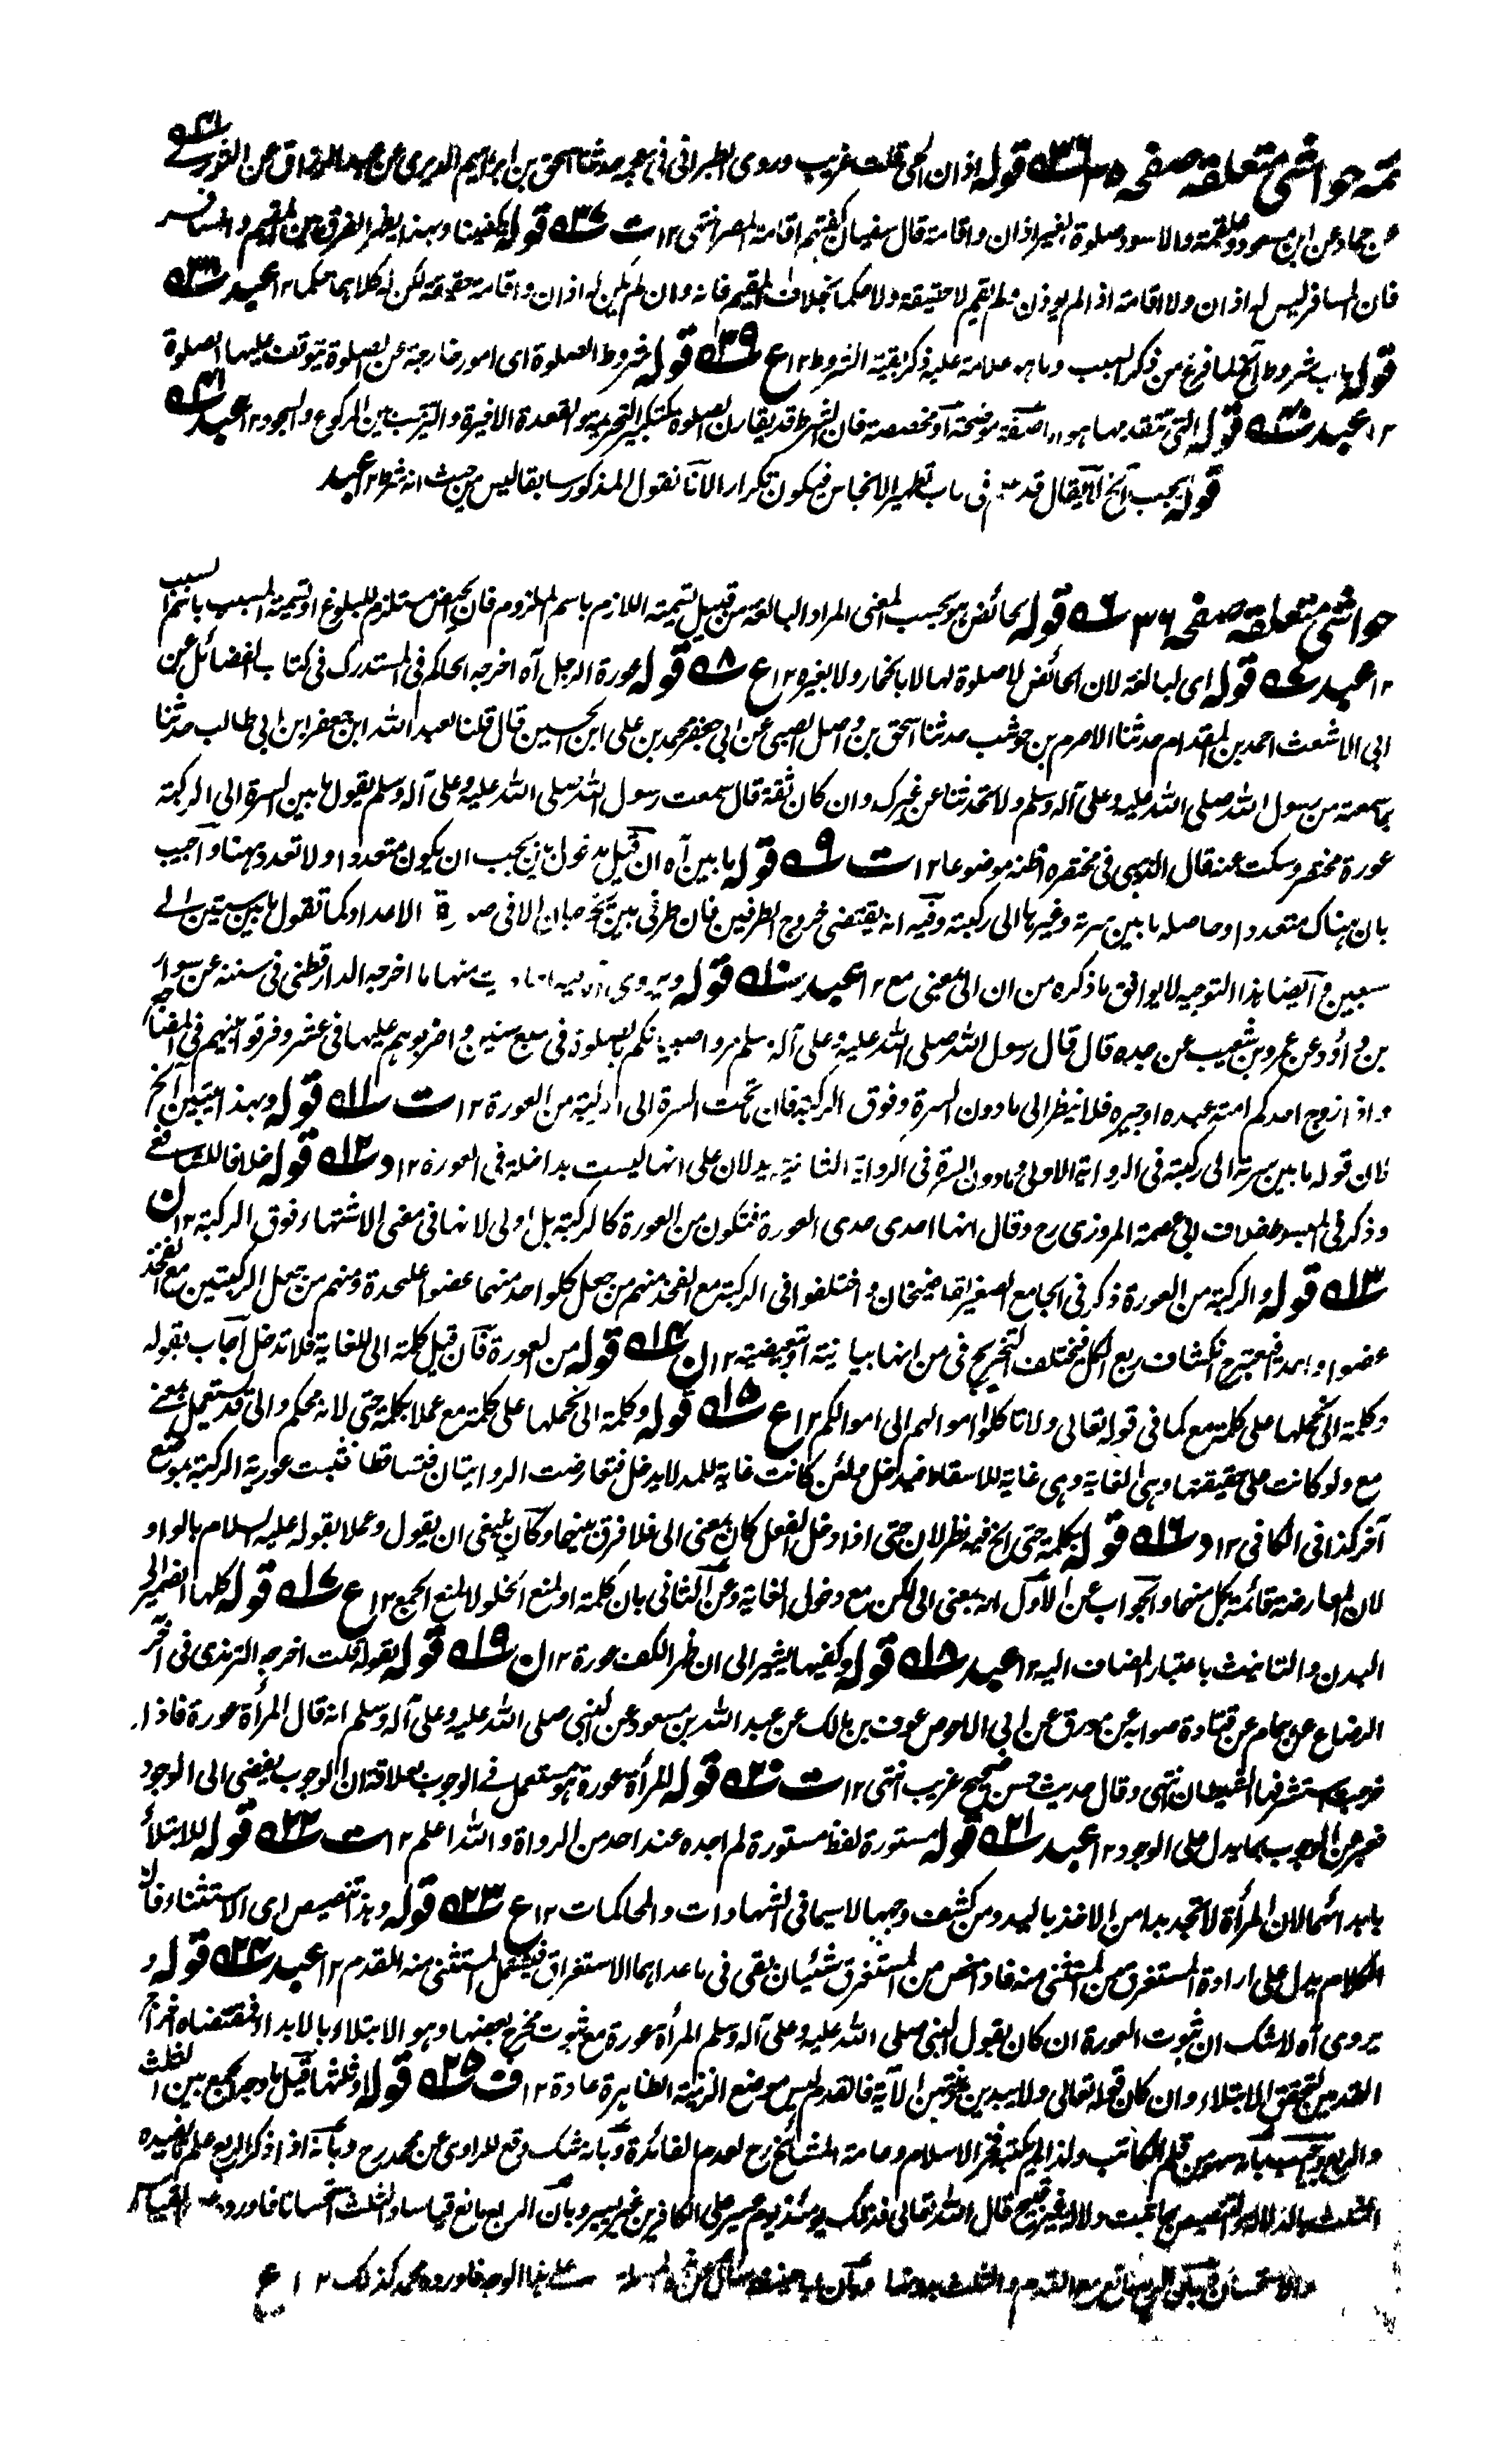 تتمه حواشی متعلقه صفحه ۳۵ ۳۶ قوله اذان الحی قلت غریب وروی الطبرانی فی معجمه حدثنا اسحق بن ابراهیم الدبری عن عبد الرزاق عن الثوری
عن حماد عن ابن مسعود وعلقمة والاسود صلوة بغیر اذان واقامة قال سفیان کفتهم اقامة المصر انتهی ۱۲ ت ۳۷ قوله یکفینا وبهذا یظهر الفرق بین المقیم والمسافر
فان المسافر لیس له اذان ولا اقامة اذا لم یوذن ولم یقم لا حقیقة ولا حکما بخلاف المقیم فانه وان لم یکن له اذان واقامة حقیقة لکن له کلاهما حکما ۱۲ عبد ۳۸
قوله باب شروط الخ لما فرغ من ذکر السبب وما هو علامة علیه ذکر بقیة الشروط ۱۲ ع ۳۹ قوله شروط الصلوة ای امور خارجة عن الصلوة یتوقف علیها الصلوة
۱۲ عبد ۴۰ قوله التی تتقدمها هو اما صفة موضحة او مخصصة فان الشرط قد یقارن الصلوة کتکبیر التحریمة والقعدة الاخیرة والترتیب بین الرکوع والسجود ۱۲ عبد ۴۱
قوله یجب الخ لا یقال قد فی باب تطهیر الانجاس فیکون تکرارا لانا نقول المذکور سابقا لیس من حیث انه شرط ۱۲ عبد
حواشی متعلقه صفحه ۳۶ ۶ قوله لحائض هو بحسب المعنی المراد البالغة من قبیل تسمیة اللازم باسم الملزوم فان الحیض مستلزم للبلوغ او تسمیة المسبب باسم السبب
۱۲ عبد ۷ قوله ای لبالغة لان الحائض لا صلوة لها لا بالخمار ولا بغیره ۱۲ ع ۸ قوله عورة الرجل آه اخرجه الحاکم فی المستدرک فی کتاب الفضائل عن
ابی الاشعث احمد بن المقدام حدثنا الاصرم بن حوشب حدثنا اسحق بن واصل الضبی عن ابی جعفر محمد بن علی ابن الحسین قال قلنا لعبد الله ابن جعفر ابن ابی طالب حدثنا
بما سمعته من رسول الله صلی الله علیه وعلی آله وسلم ولا تحدثنا عن غیرک وان کان ثقة قال سمعت رسول الله صلی الله علیه وعلی آله وسلم یقول ما بین السرة الی الرکبة
عورة مختصر وسکت عنه قال الذهبی فی مختصره اظنه موضوعا ۱۲ ت ۹ قوله ما بین آه ان قیل مدخول بین یجب ان یکون متعددا ولا تعدد ههنا واجیب
بان هناک متعددا وحاصله ما بین سرته وغیرها الی رکبته وفیه انه یقتضی خروج الطرفین فان طرفی بین یخرجان الا فی الاعداد کما تقول ما بین ستین الی
سبعین وایضا هذا التوجیه لا یوافق ما ذکره من ان الی بمعنی مع ۱۲ عبد ۱۰ قوله ویروی منها ما اخرجه الدارقطنی فی سننه عن سوار
بن داؤد عن عمرو بن شعیب عن جده قال قال رسول الله صلی الله علیه وعلی آله وسلم مروا صبیانکم بالصلوة فی سبع سنین واضربوهم علیها فی عشر وفرقوا بینهم فی المضاجع
واذا زوج احدکم امته عبده او اجیره فلا ینظر الی ما دون السرة وفوق الرکبة فان تحت السرة الی الرکبة من العورة ۱۲ ت ۱۱ قوله وبهذا یتبین الخ
فان قوله ما بین سرته الی رکبته فی الروایة الاولی وما دون السرة فی الروایة الثانیة یدلان علی انها لیست بداخلة فی العورة ۱۲ د ۱۲ قوله خلافا للشافعی
وذکر فی المبسوط خلاف ابی عصمة المروزی رح وقال انها احدی حدی العورة فتکون من العورة کالرکبة بل اولی لانها فی معنی الاشتهاء فوق الرکبة ۱۲ ن
۱۳ قوله والرکبة من العورة ذکر فی الجامع الصغیر لقاضیخان واختلفوا فی الرکبة مع الفخذ منهم من جعل کلواحد منهما عضوا علیحدة ومنهم من جعل الرکبتین مع الفخذ
عضوا واحدا فیعتبر انکشاف ربع الکل فیختلف التخریج فی من انها بیانیة او تبعیضیة ۱۲ ن ۱۴ قوله من العورة فان قیل کلمة الی للغایة فلا تدخل اجاب بقوله
وکلمة الی نحملها علی کلمة مع کما فی قوله تعالی ولا تاکلوا اموالهم الی اموالکم ۱۲ ع ۱۵ قوله وکلمة الی نحملها علی کلمة مع عملا بکلمة حتی لانه محکم والی قد یستعمل بمعنی
مع ولو کانت علی حقیقتها وهی الغایة وهی غایة للاسقاط فیدخل ولئن کانت غایة للمد لا یدخل فتعارضت الروایتان فتساقطا فثبت عوریة الرکبة بموضع
آخر کذا فی الکافی ۱۲ د ۱۶ قوله بکلمة حتی الخ فیه نظر لان حتی اذا دخل الفعل کان بمعنی الی فلا فرق بینهما وکان ینبغی ان یقول وعملا بقوله علیه السلام بالواو
لان المعارضة قائمة بکل منهما والجواب عن الاول انه بمعنی الی لکن مع دخول الغایة وعن الثانی بان کلمة او لمنع الخلو لا لمنع الجمع ۱۲ ع ۱۷ قوله کلها الضمیر الی
البدن والتانیث باعتبار المضاف الیه ۱۲ عبد ۱۸ قوله وکفیها یشیر الی ان ظهر الکف عورة ۱۲ ن ۱۹ قوله لقوله قلت اخرجه الترمذی فی آخر
الرضاع عن همام عن قتادة صوابه عن مورق عن ابی الاحوص عوف بن مالک عن عبد الله بن مسعود عن النبی صلی الله علیه وعلی آله وسلم انه قال المرأة عورة فاذا
خرجت استشرفها الشیطان انتهی وقال حدیث حسن صحیح غریب انتهی ۱۲ ت ۲۰ قوله المرأة عورة هو مستعمل فی الوجوب بعلاقة ان الوجوب یفضی الی الوجود
فعبر عن الوجوب بما یدل علی الوجود ۱۲ عبد ۲۱ قوله مستورة لفظ مستورة لم اجده عند احد من الرواة والله اعلم ۱۲ ت ۲۲ قوله للابتلاء
بابدائهما لان المرأة لا تجد بدا من الاخذ بالید ومن کشف وجهها لاسیما فی الشهادات والمحاکمات ۱۲ ع ۲۳ قوله وهذا تنصیص ای الاستثناء فان
الکلام یدل علی ارادة المستغرق من المستثنی منه فاذا خص من المستغرق شیئان بقی فی ما عداهما الاستغراق فیشمل المستثنی منه القدم ۱۲ عبد ۲۴ قوله و
یروی آه لا شک ان ثبوت العورة ان کان بقول النبی صلی الله علیه وعلی آله وسلم المرأة عورة مع ثبوت مخرج بعضها وهو الابتلاء بالابداء فمقتضاه اخراج
القدمین لتحقق الابتلاء وان کان قوله تعالی ولا یبدین زینتهن الآیة فالقدم لیس موضع الزینة الظاهرة عادة ۱۲ ف ۲۵ قوله او ثلثها قیل ما وجه الجمع بین الثلث
والربع واجیب بانه سهو من قلم الکاتب ولذا لم یکتبه فخر الاسلام وعامة المشائخ رح لعدم الفائدة وبانه شک وقع للراوی عن محمد رح وبانه اذا ذکر الربع علم
قال الله تعالی فذلک یومئذ یوم عسیر علی الکافرین غیر یسیر وبان الربع مانع قیاسا والثلث استحسانا فاورد
والاستحسان مع القدم والثلث علی هذا الوجه فاورده محمد کذلک ۱۲ ع